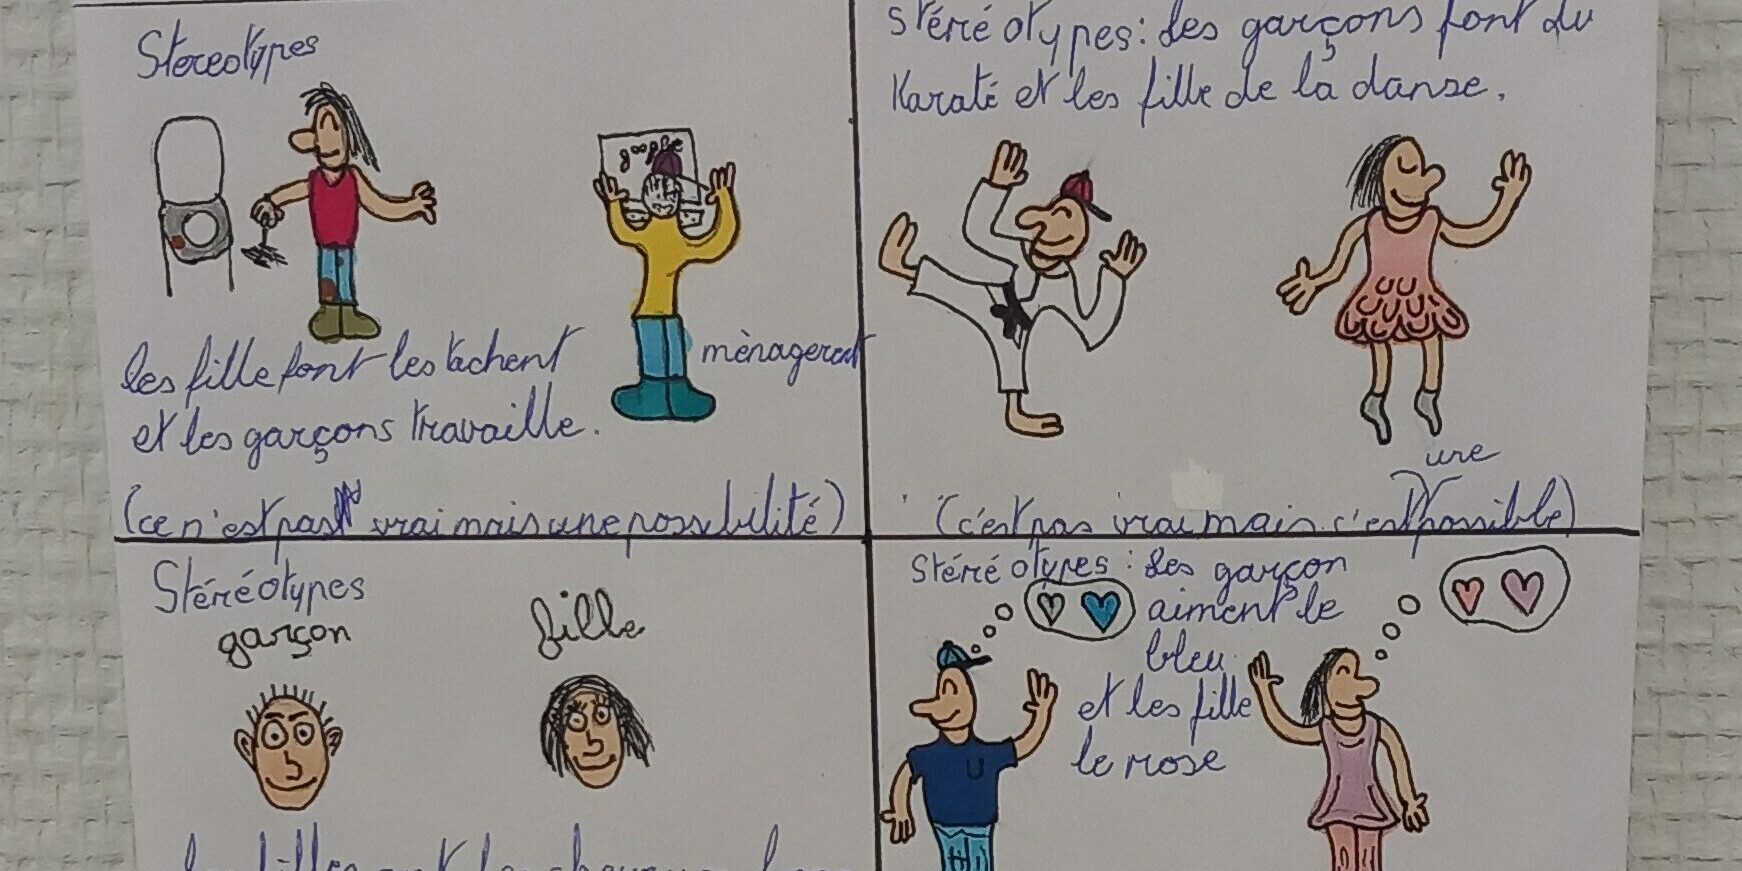 Stereotypes
google
les fille font les tachent
ménagerent
et les garçons travaille.
(ce n'est pas vrai mais une possibilité)
stéréotypes: Les garçons font du
Karaté et les fille de la danse.
une
(c'est pas vrai mais c'est possible)
Stéréotypes
garçon
fille
les filles ont les cheveux
Stéréotypes : Les garçon
aiment le
bleu
et les fille
le rose